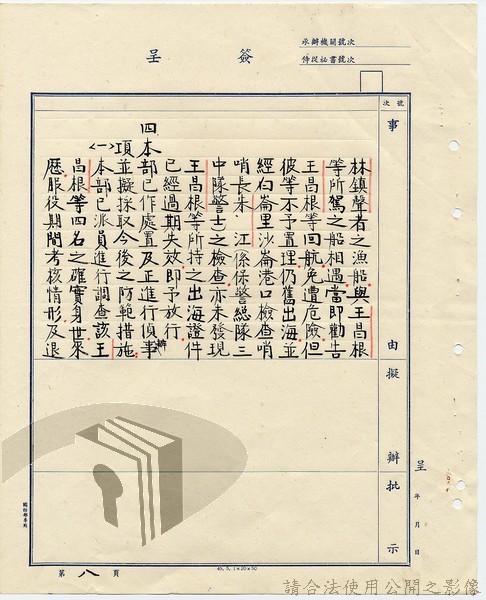 簽呈
承辦機關號次
侍從祕書號次
號次
事由擬辦批示
林鎮聲者之漁船與王昌根
等所駕之船相遇當即勸告
王昌根等回航免遭危險但
彼等不予置理仍舊出海並
經向崙里沙崙港口檢查哨
哨長朱江係保警總隊三
中隊警士之檢查亦未發現
王昌根等所持之出海證件
已經過期失效即予放行
四本部已作處置及正進行偵辦事
項並擬採取今後之防範措施
(一)本部已派員進行調查該王
昌根等四名之確實身世來
歷服役期間考核情形及退
呈 年 月 日
第八頁
45. 5. 1×20×50
請合法使用公開之影像